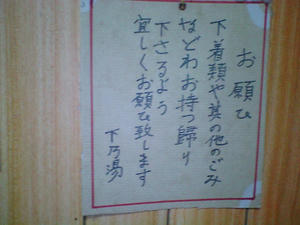 お願ひ
下着類や其の他のごみ
などわお持つ歸り
下さるよう
宜しくお願ひ致します
下乃湯